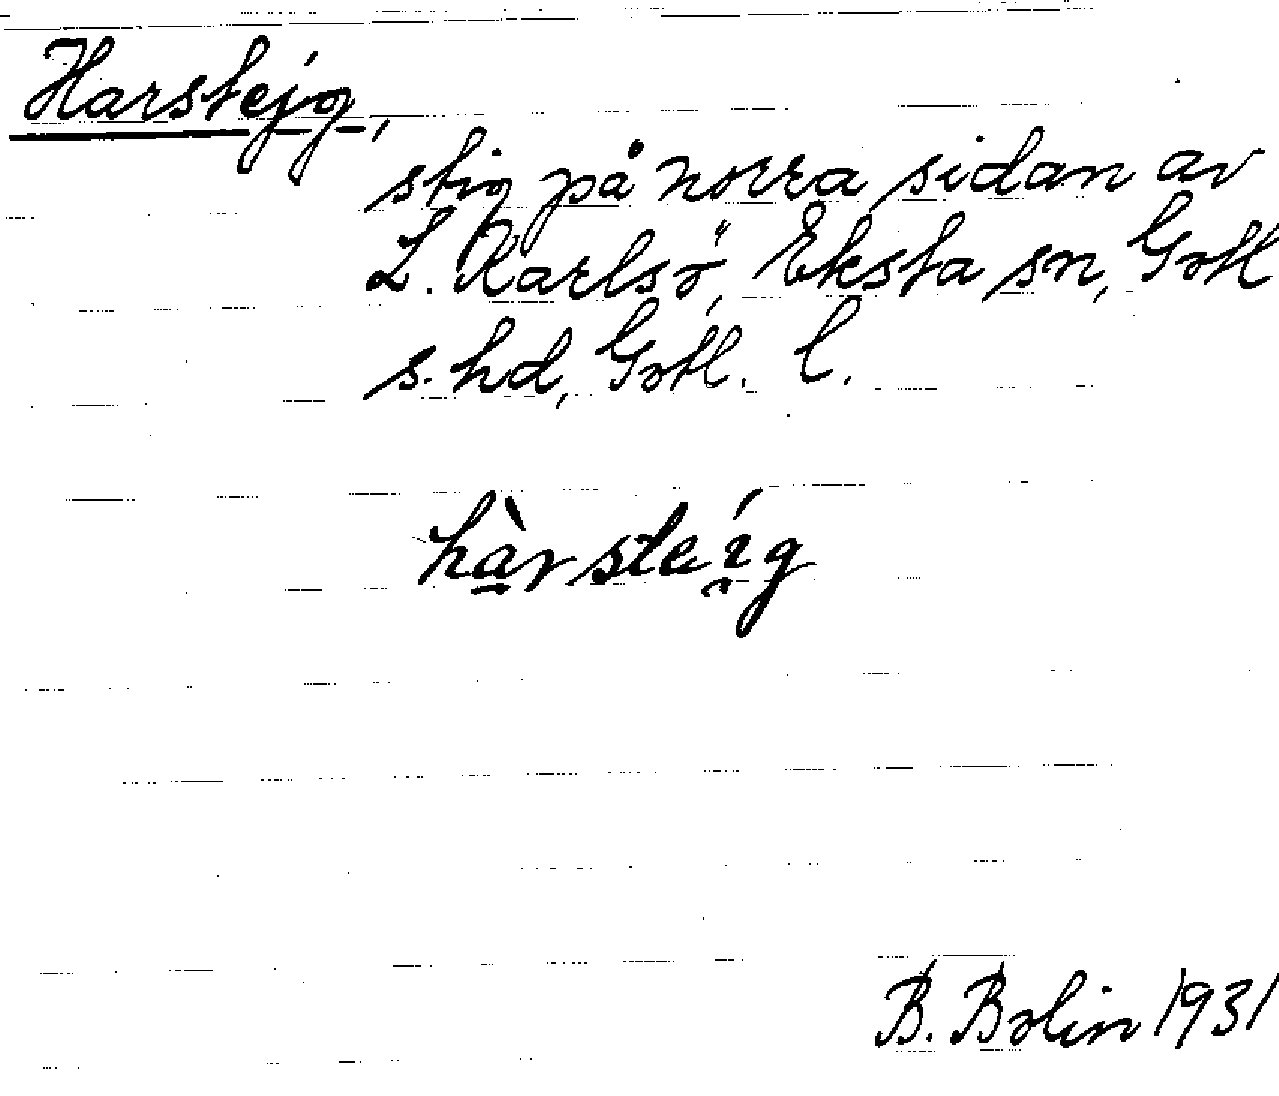 Harstejg,
stig på norra sidan av
L. Karlsö, Eksta sn, Gotl
s. hd, Gotl. l.
hàrsteı́g
B. Bolin 1931